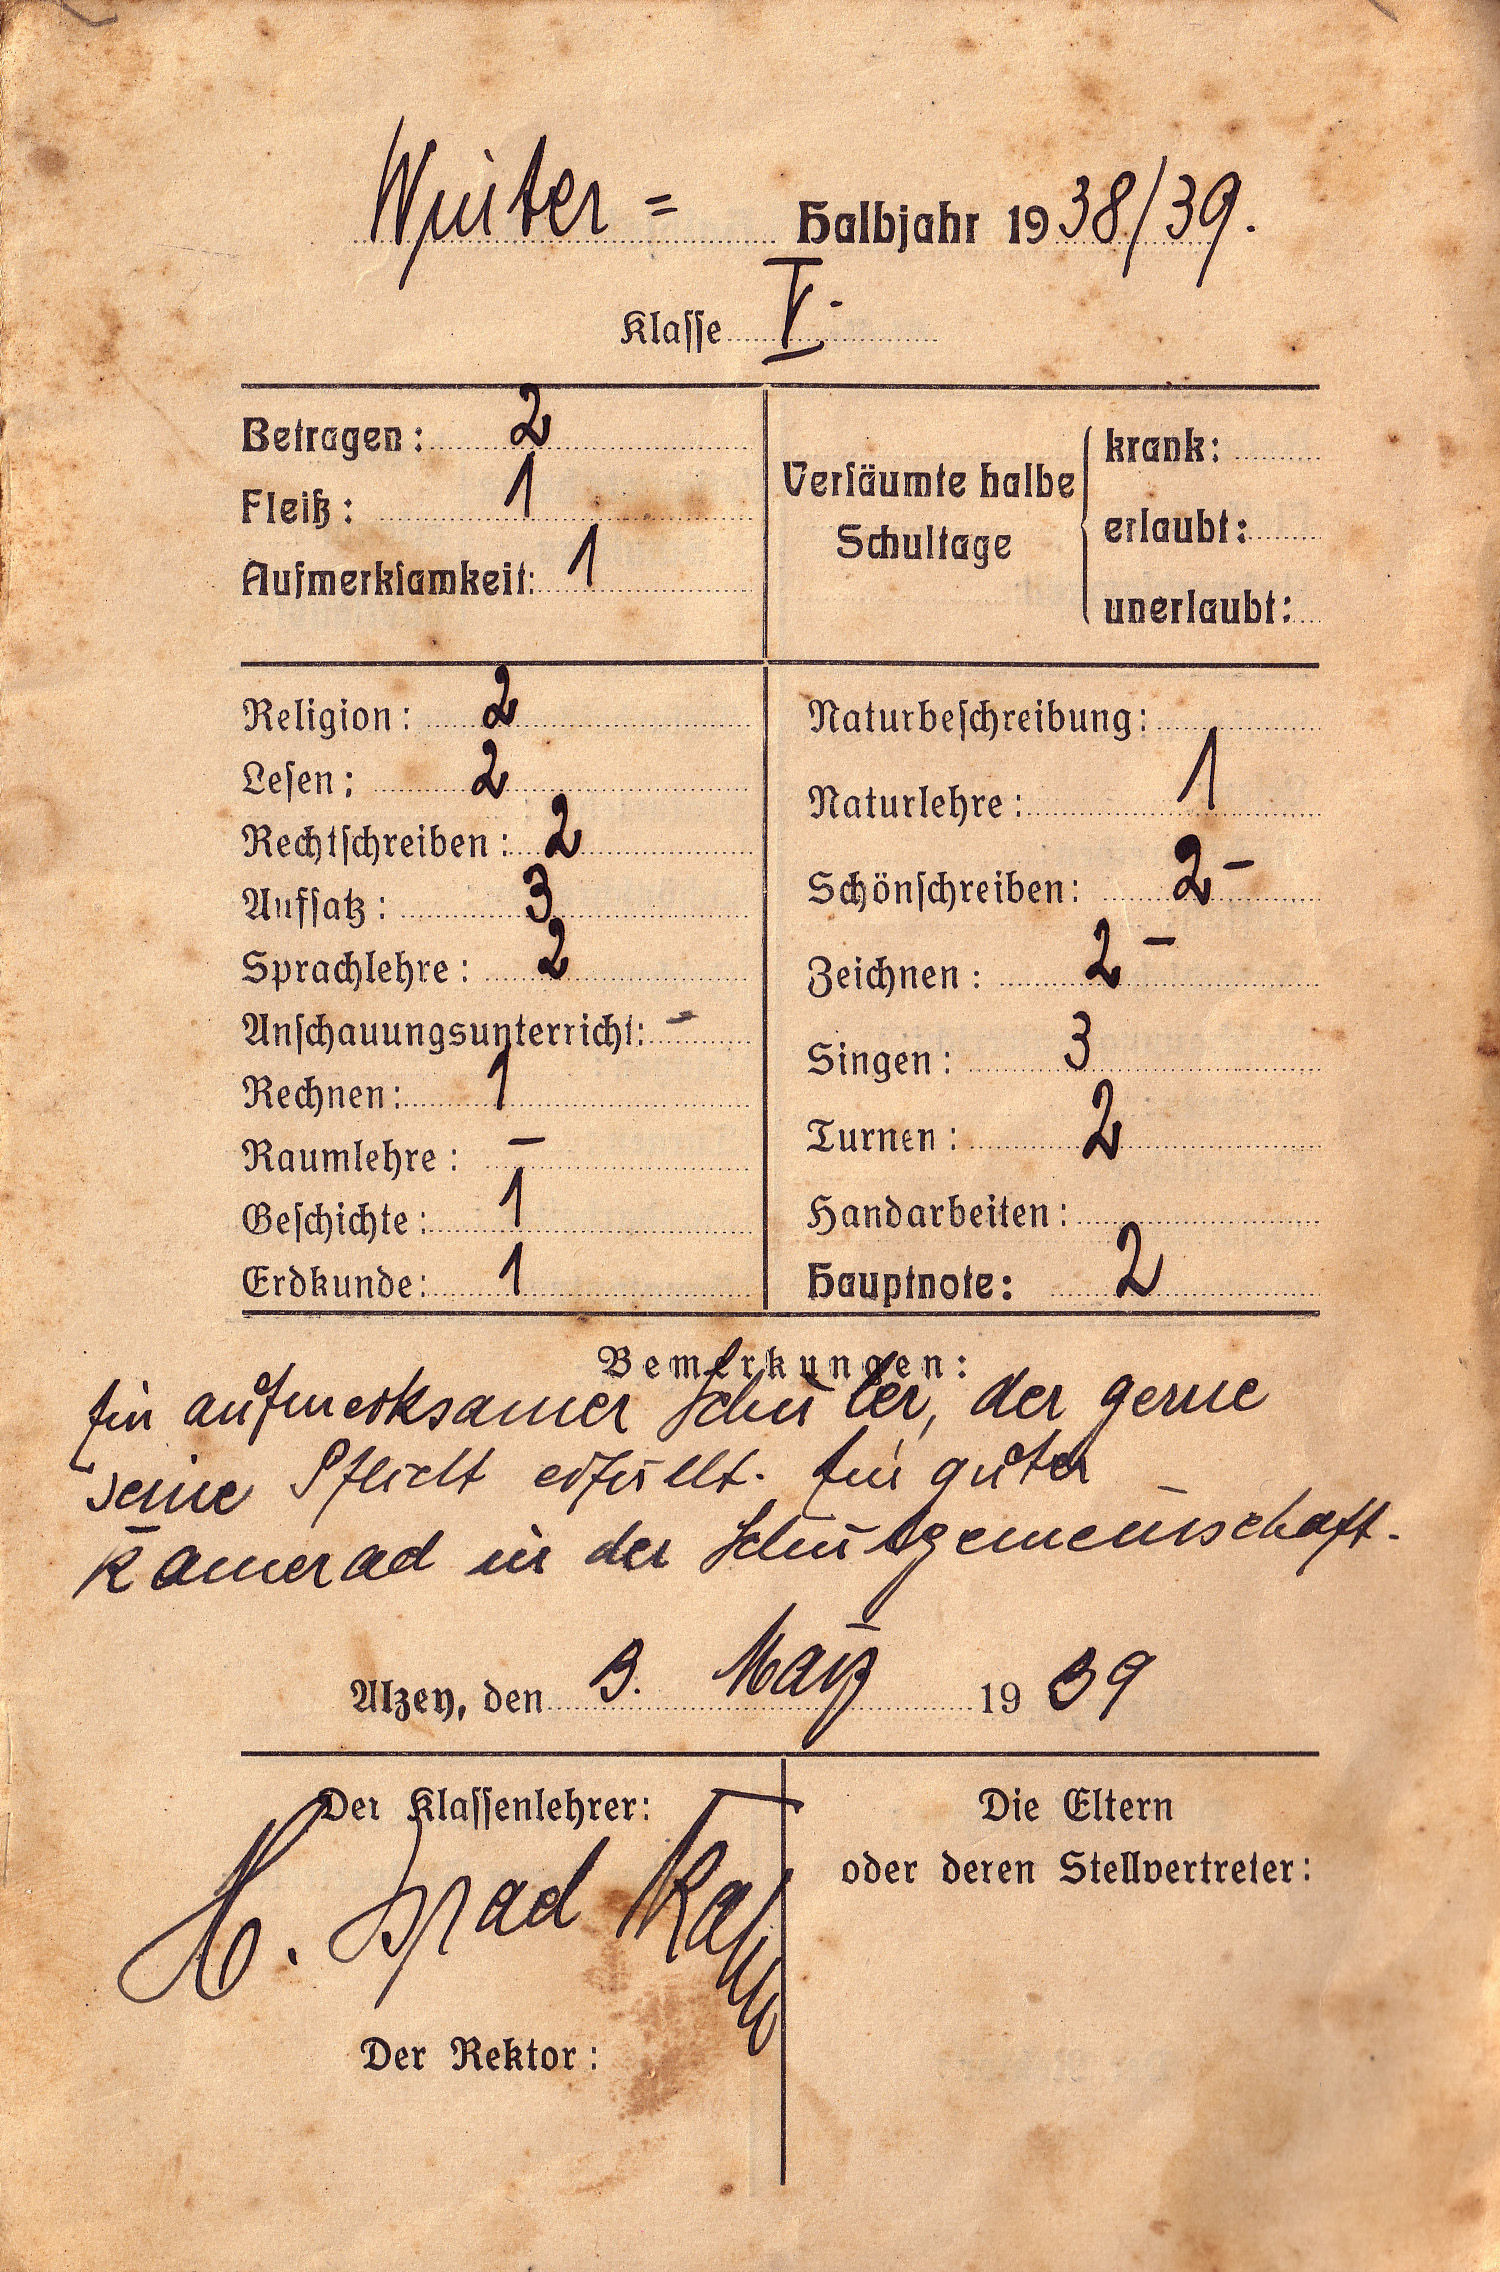 Winter= Halbjahr 1938/39.
Klasse V.
Betragen: 2
Fleiß: 1
Aufmerksamkeit: 1
Versäumte halbe Schultage
krank:
erlaubt:
unerlaubt:
Religion: 2
Lesen: 2
Rechtschreiben: 2
Aufsatz: 3
Sprachlehre: 2
Anschauungsunterricht: -
Rechnen: 1
Raumlehre: -
Geschichte: 1
Erdkunde: 1
Naturbeschreibung:
Naturlehre: 1
Schönschreiben: 2-
Zeichnen: 2-
Singen: 3
Turnen: 2
Handarbeiten:
Hauptnote: 2
Bemerkungen:
Ein aufmerksamer Schüler, der gerne
seine Pflicht erfüllt. Ein guter
Kamerad in der Schulgemeinschaft.
Alzey, den 3. März 1939
Der Klassenlehrer:
Die Eltern
oder deren Stellvertreter:
Der Rektor: